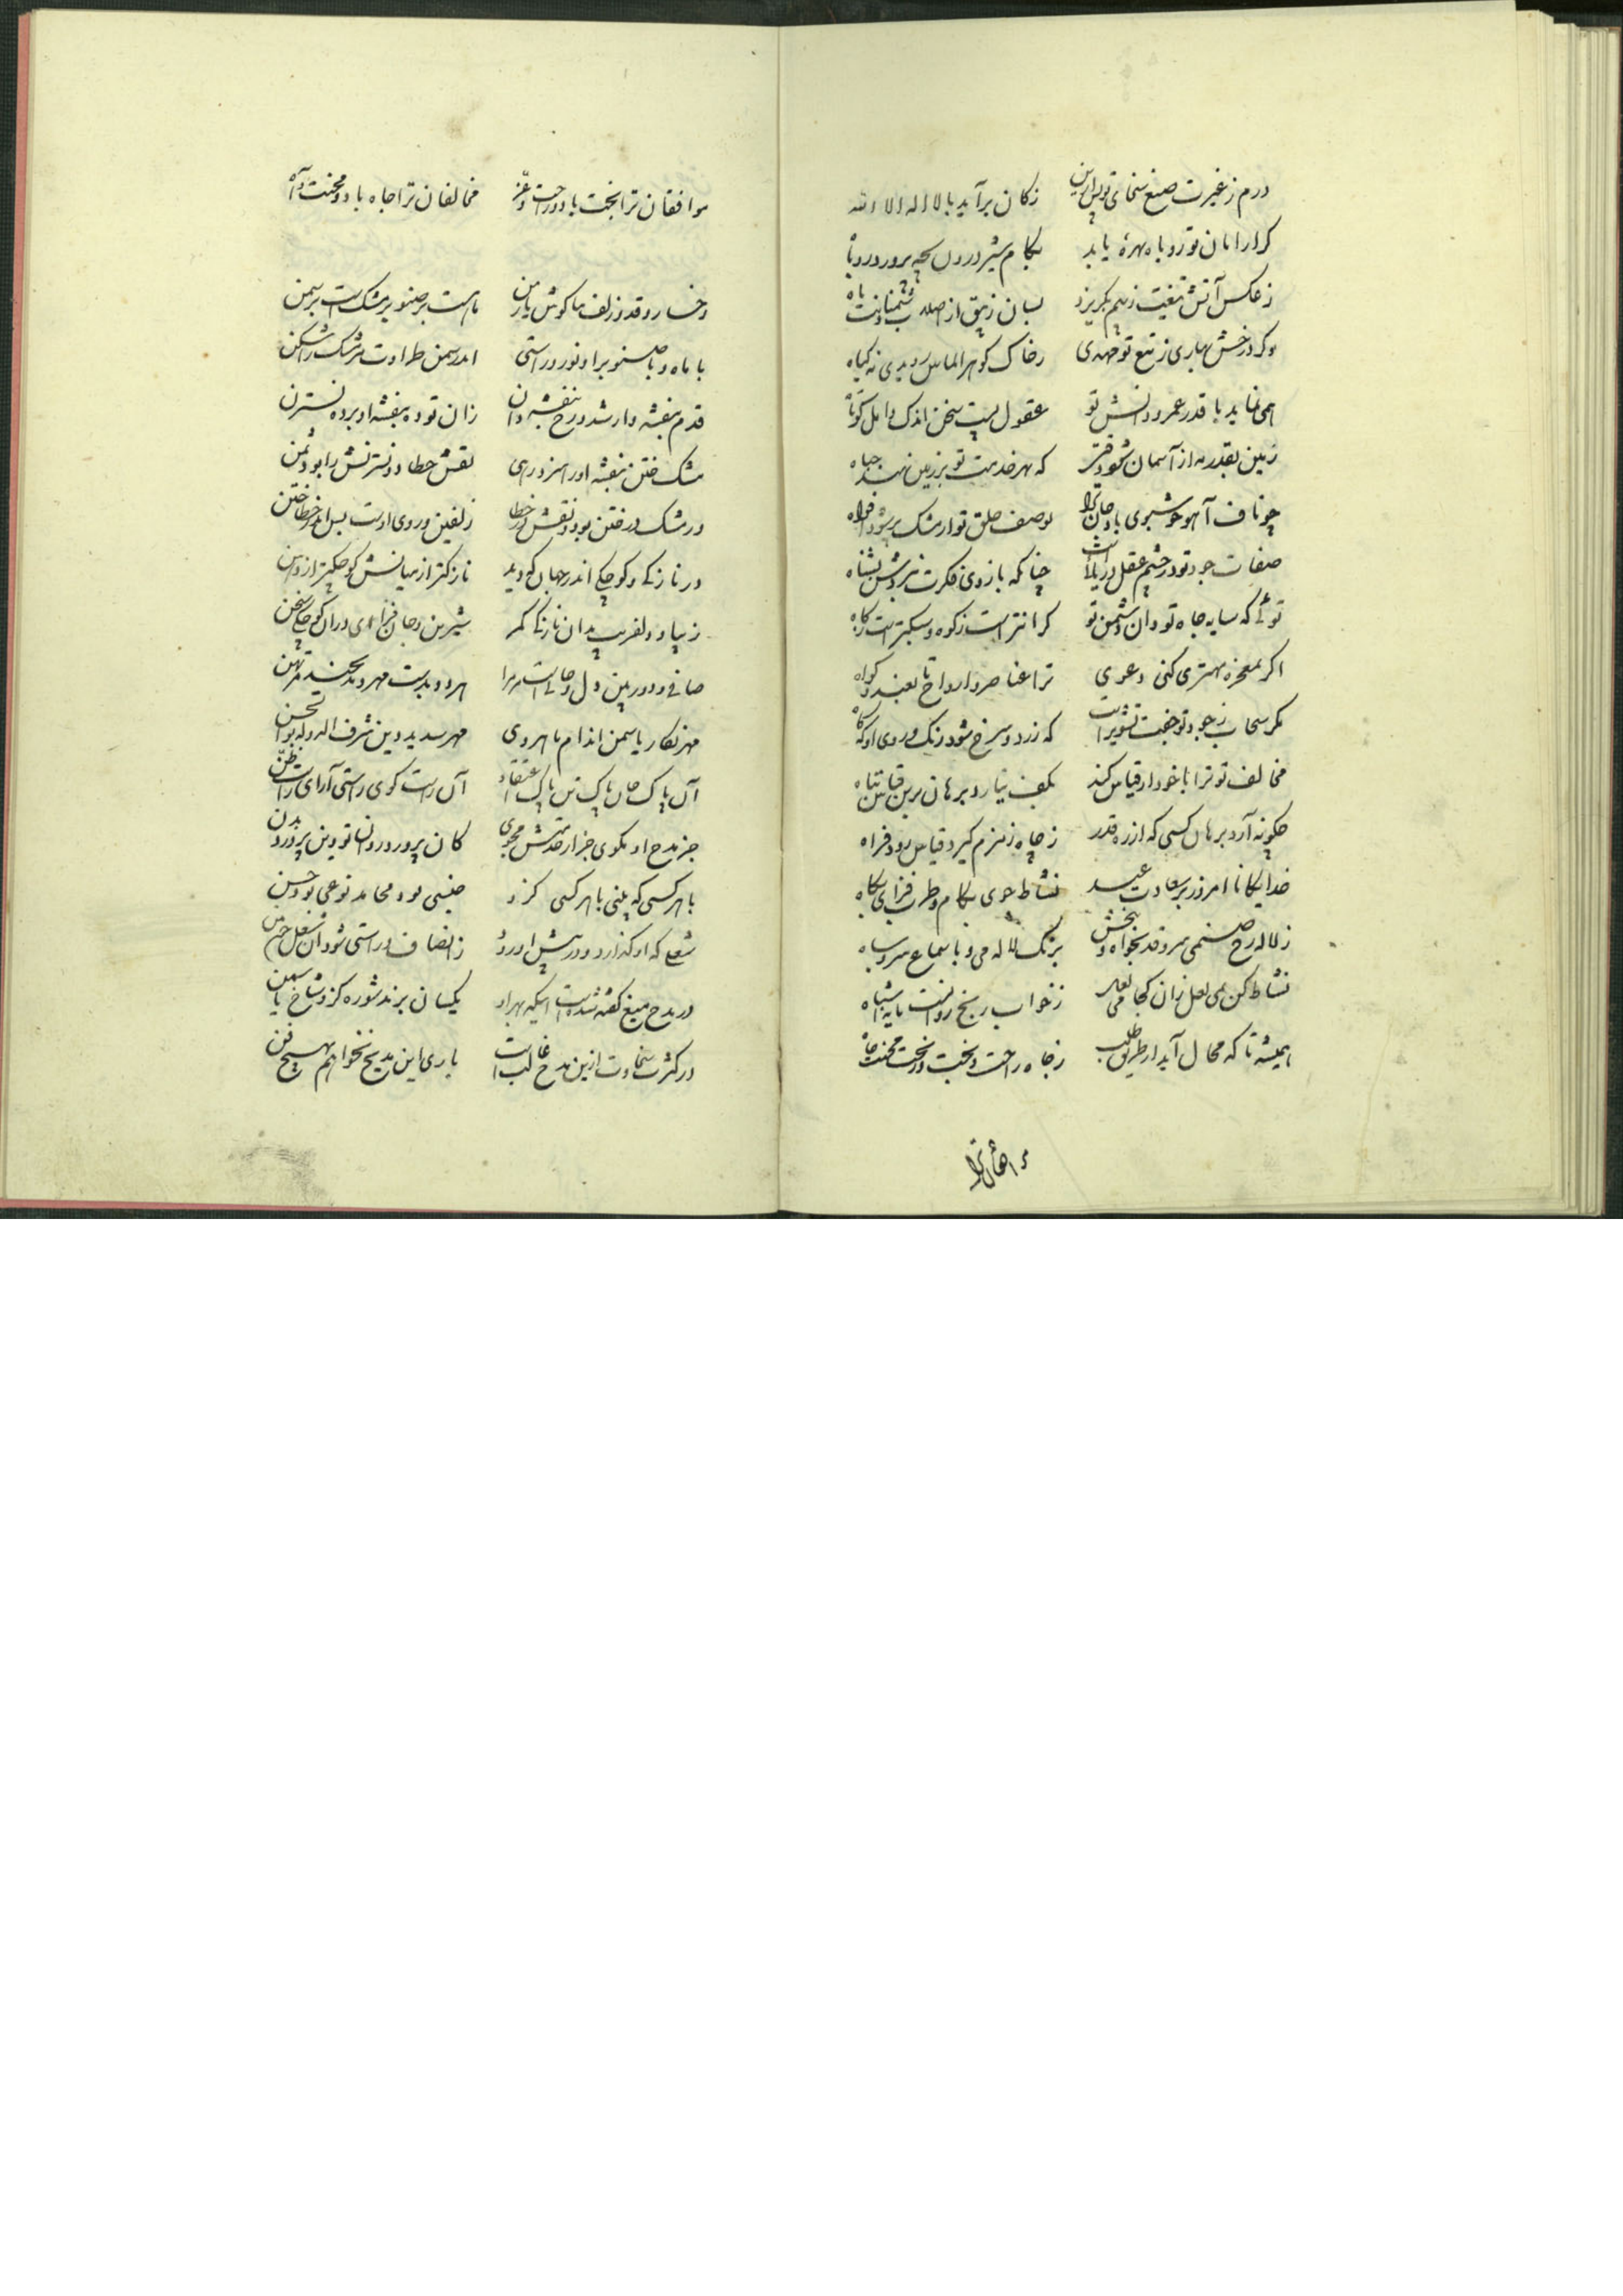 درم ز غیرت صنع سخای تو پس ازین زکان برآید با لا اله الا الله
کر از امان تو روباه بهرهٔ یابد بکام شیر درون بچه پرورد روباه
ز عکس آتش تیغت ز بیم بکریزد بسان زیبق از اصلاب دشمنانت باه
وکر درخش بهاری ز تیغ تو جهدی ز خاک کوهر الماس رویدی نه کیاه
همی نماید با قدر عمر و دانش تو عقول پست سخن اندک و امل کوتاه
زمین بقدر به از آسمان شود که بهر خدمت تو بر زمین نهند جباه
چو ناف آهو خوشبوی باد جان ترا بوصف خلق تو از مشک پر شود افواه
صفات جود تو در چشم عقل دریا است چنانکه بازوی فکرت نبردش بشناه
توئی که سایه جاه تو و ان دشمن تو کرانتر است ز کوه و سبکتر است ز کاه
اکر بمعجزه مهتری کنی دعوی ترا عناصر و ارواح تابعند و کواه
مکر سحاب ز جود تو جفت تشویر است که زرد و سرخ شود رنک روی او که کاه
مخالف تو ترا با خود ار قیاس کند بکف نیارد برهان برین قیاس تباه
چکونه آرد برهان کسی که از ره قدر ز چاه زمزم کیرد قیاس رود فراه
خدایکانا امروز بر سعادت عید نشاط جوی بکام و طرب فزای بکاه
ز لاله رخ صنمی سرو قد بخواه و ببخش برنک لاله می و با سماع سرو سیاه
نشاط کن بمی لعل زان کجا می لعل ز خواب رنج روانست مایه اشباه
همیشه تا که محال آید از طریق طلب ز جاه راحت و بخت و ز بخت محنت جاه
موافقان ترا
موافقان ترا بخت باد و راحت و عز مخالفان ترا جاه باد و محنت و آه
رخسار و قد و زلف بناکوش یار من ماهست بر صنوبر مشکست بر سمن
با ماه و با صنوبر او نور و راستی اندر سمن طراوت و بر مشک او شکن
قدم بنفشه وار شد و رخ بنفشه دان زان توده بنفشه او برده نسترن
مشک ختن بنفشه او را سزد رهی نقش خطا دو نسترنش را بود ثمن
ور مشک در ختن بود و نقش در خطا زلفین و روی اوست پس اندر خطا ختن
در نازکی و کوچکی اندر جهان که دید نازکتر از میانش کوچکتر از دهن
زیبا و دلفریب بدان نازکی کمر شیرین و جان فزای دران کوچکی سخن
صافی و دوربین دل و جانی است مر مرا هر دو بدست مهر و بدیحند مرتهن
مهر نکار یاسمن اندام ماهروی مهر سدید دین شرف الدوله بوالحسن
آن پاک جان پاک تن پاک اعتقاد آن راست کوی راستی آرای راست ظن
جز مدح او مکوی جز از خدمتش مجوی کان پرورد روان تو وین پرورد بدن
با هر کسی که بینی با هر کسی کزو جنسی بود محامد نوعی بود حسن
شغلی که او کذارد و در پیش او رود ز انصاف و راستی شود آن شغل چون
در مدح میغ کفته شدست اینکه بهر او یکسان برند شوره کز و شاخ یاسمن
در کثرت سخاوت ازین مدح غالب است باری این مدیح نخواهم بهیچ فن